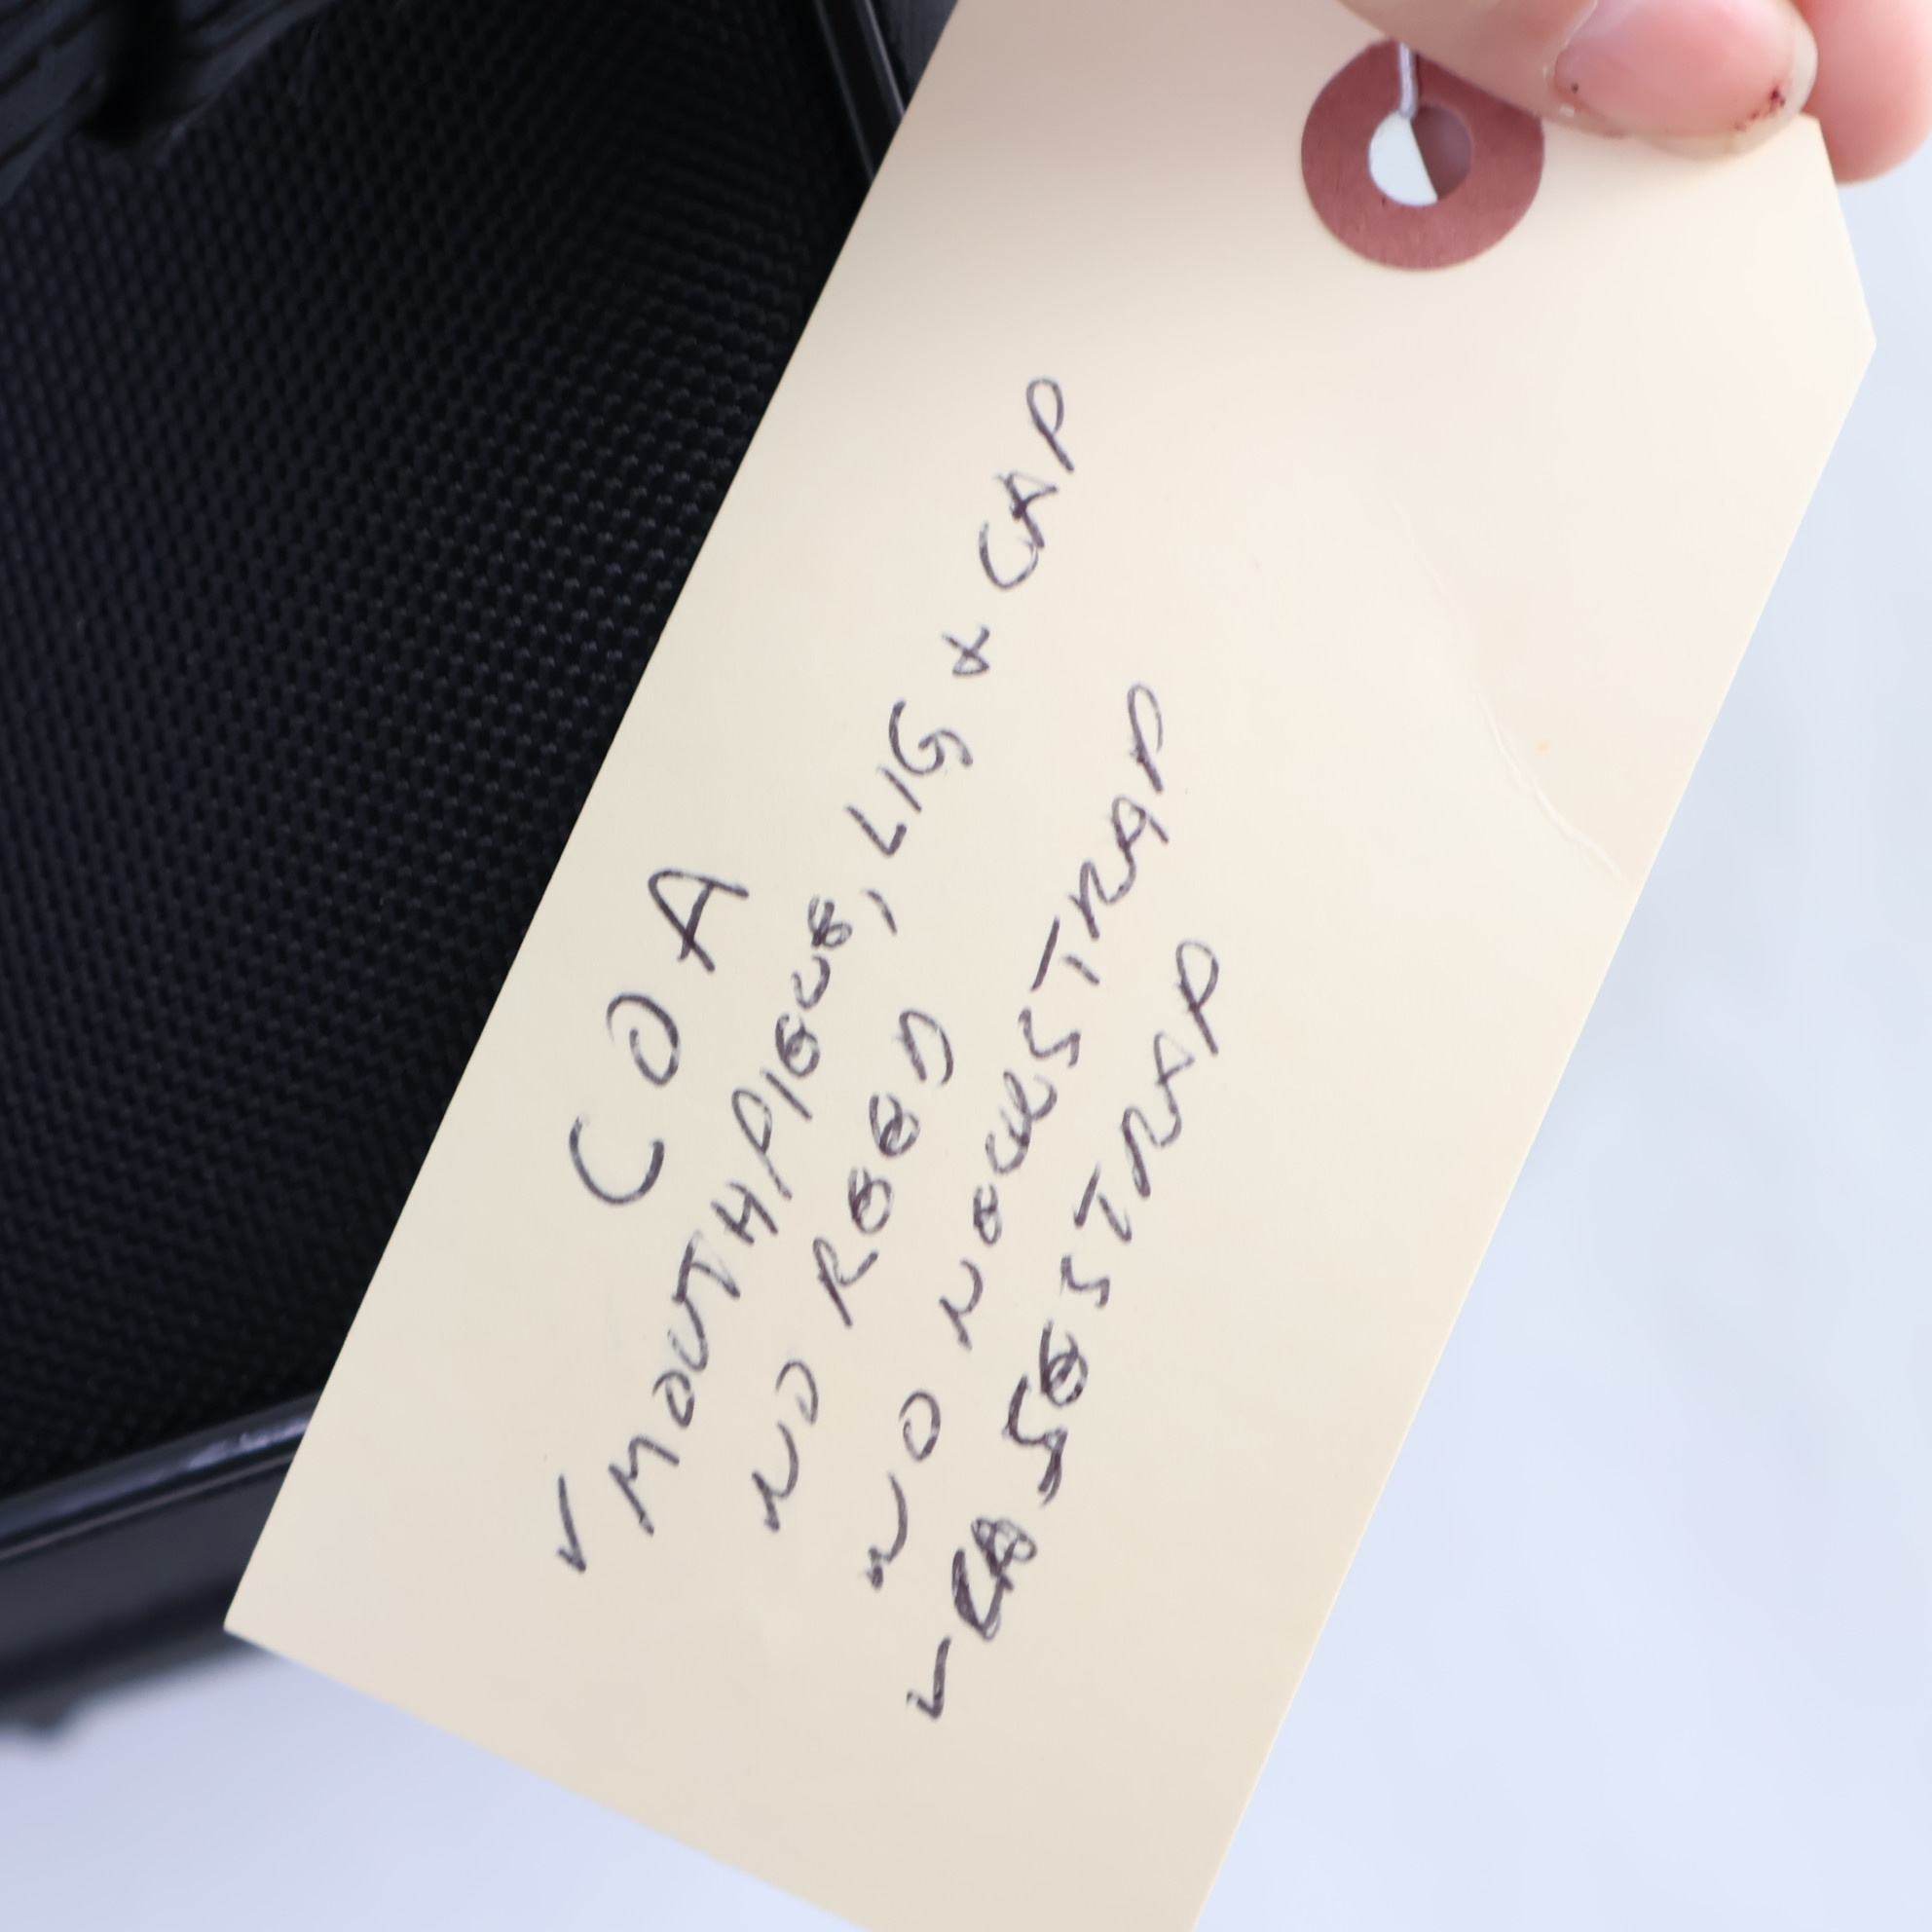 COA
✓ MOUTHPIECE, LIG & CAP
NO REED
NO NECKSTRAP
✓ CASE STRAP